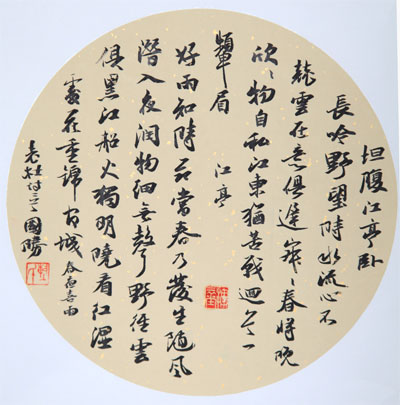 坦腹江亭卧
長吟野望時水流心不
競雲在意俱遲寂〻春將晚
欣〻物自私江東猶苦戰迴首一
顰眉 江亭
好雨知時節當春乃發生随風
潛入夜潤物細無聲野徑雲
俱黑江船火獨明曉看紅濕
處花重锦官城 春夜喜雨
老杜诗二首 國勝